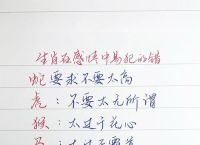 生肖在感情中易犯的错
蛇要求不要太高
虎：不要太无所谓
猴：太过于花心
马：太过于要